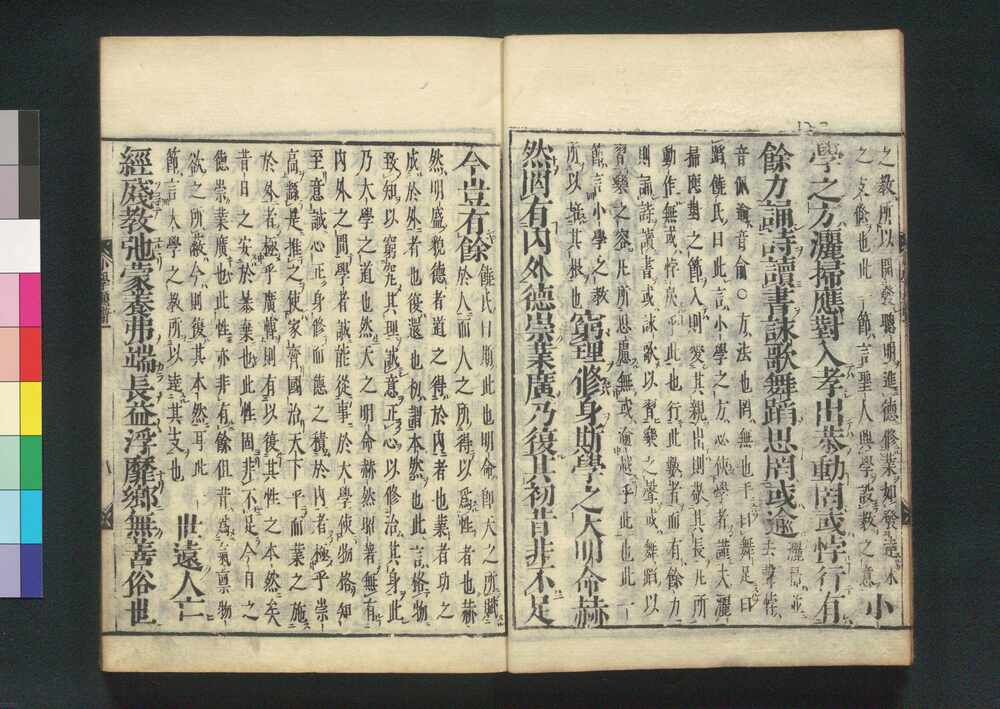 之教所以開發聰明進德修業如發達木
之支條也此一節言聖人興學設教之意
小
學之方灑掃應對入孝出恭動罔或悖行有
餘力誦詩讀書詠歌舞蹈思罔或逾
灑掃並
去聲悖
音佩逾音俞○方法也罔無也手曰舞足曰
蹈饒氏曰此言小學之方必使學者謹夫灑
掃應對之節入則愛其親出則敬其長凡所
動作無或悖戾乎此也行此數者而有餘力
則誦詩讀書或詠歌以習樂之聲或舞蹈以
習樂之容凡所思慮無或逾越乎此也此一
節言小學之教
所以培其根也
窮理修身斯學之大明命赫
然罔有內外德崇業廣乃復其初昔非不足
今豈有餘
饒氏曰斯此也明命即天之所賦
於人而人之所得以爲性者也赫
然明盛貌德者道之得於內者也業者功之
成於外者也復還也初謂本然也此言格物
致知以窮究其理誠意正心以修治其身此
乃大學之道也然天之明命赫然昭著無有
內外之間學者誠能從事於大學使物格知
至意誠心正身修而德之積於內者極乎崇
高繇是推之使家齊國治天下平而業之施
於外者極乎廣博則有以復其性之本然矣
昔日之安於暴棄也此性固非不足今日之
德崇業廣也此性亦非有餘但昔爲氣稟物
欲之所蔽今則復其本然耳此一
節言大學之教所以達其支也
世遠人亡
經殘教弛蒙養弗端長益浮靡鄉無善俗世